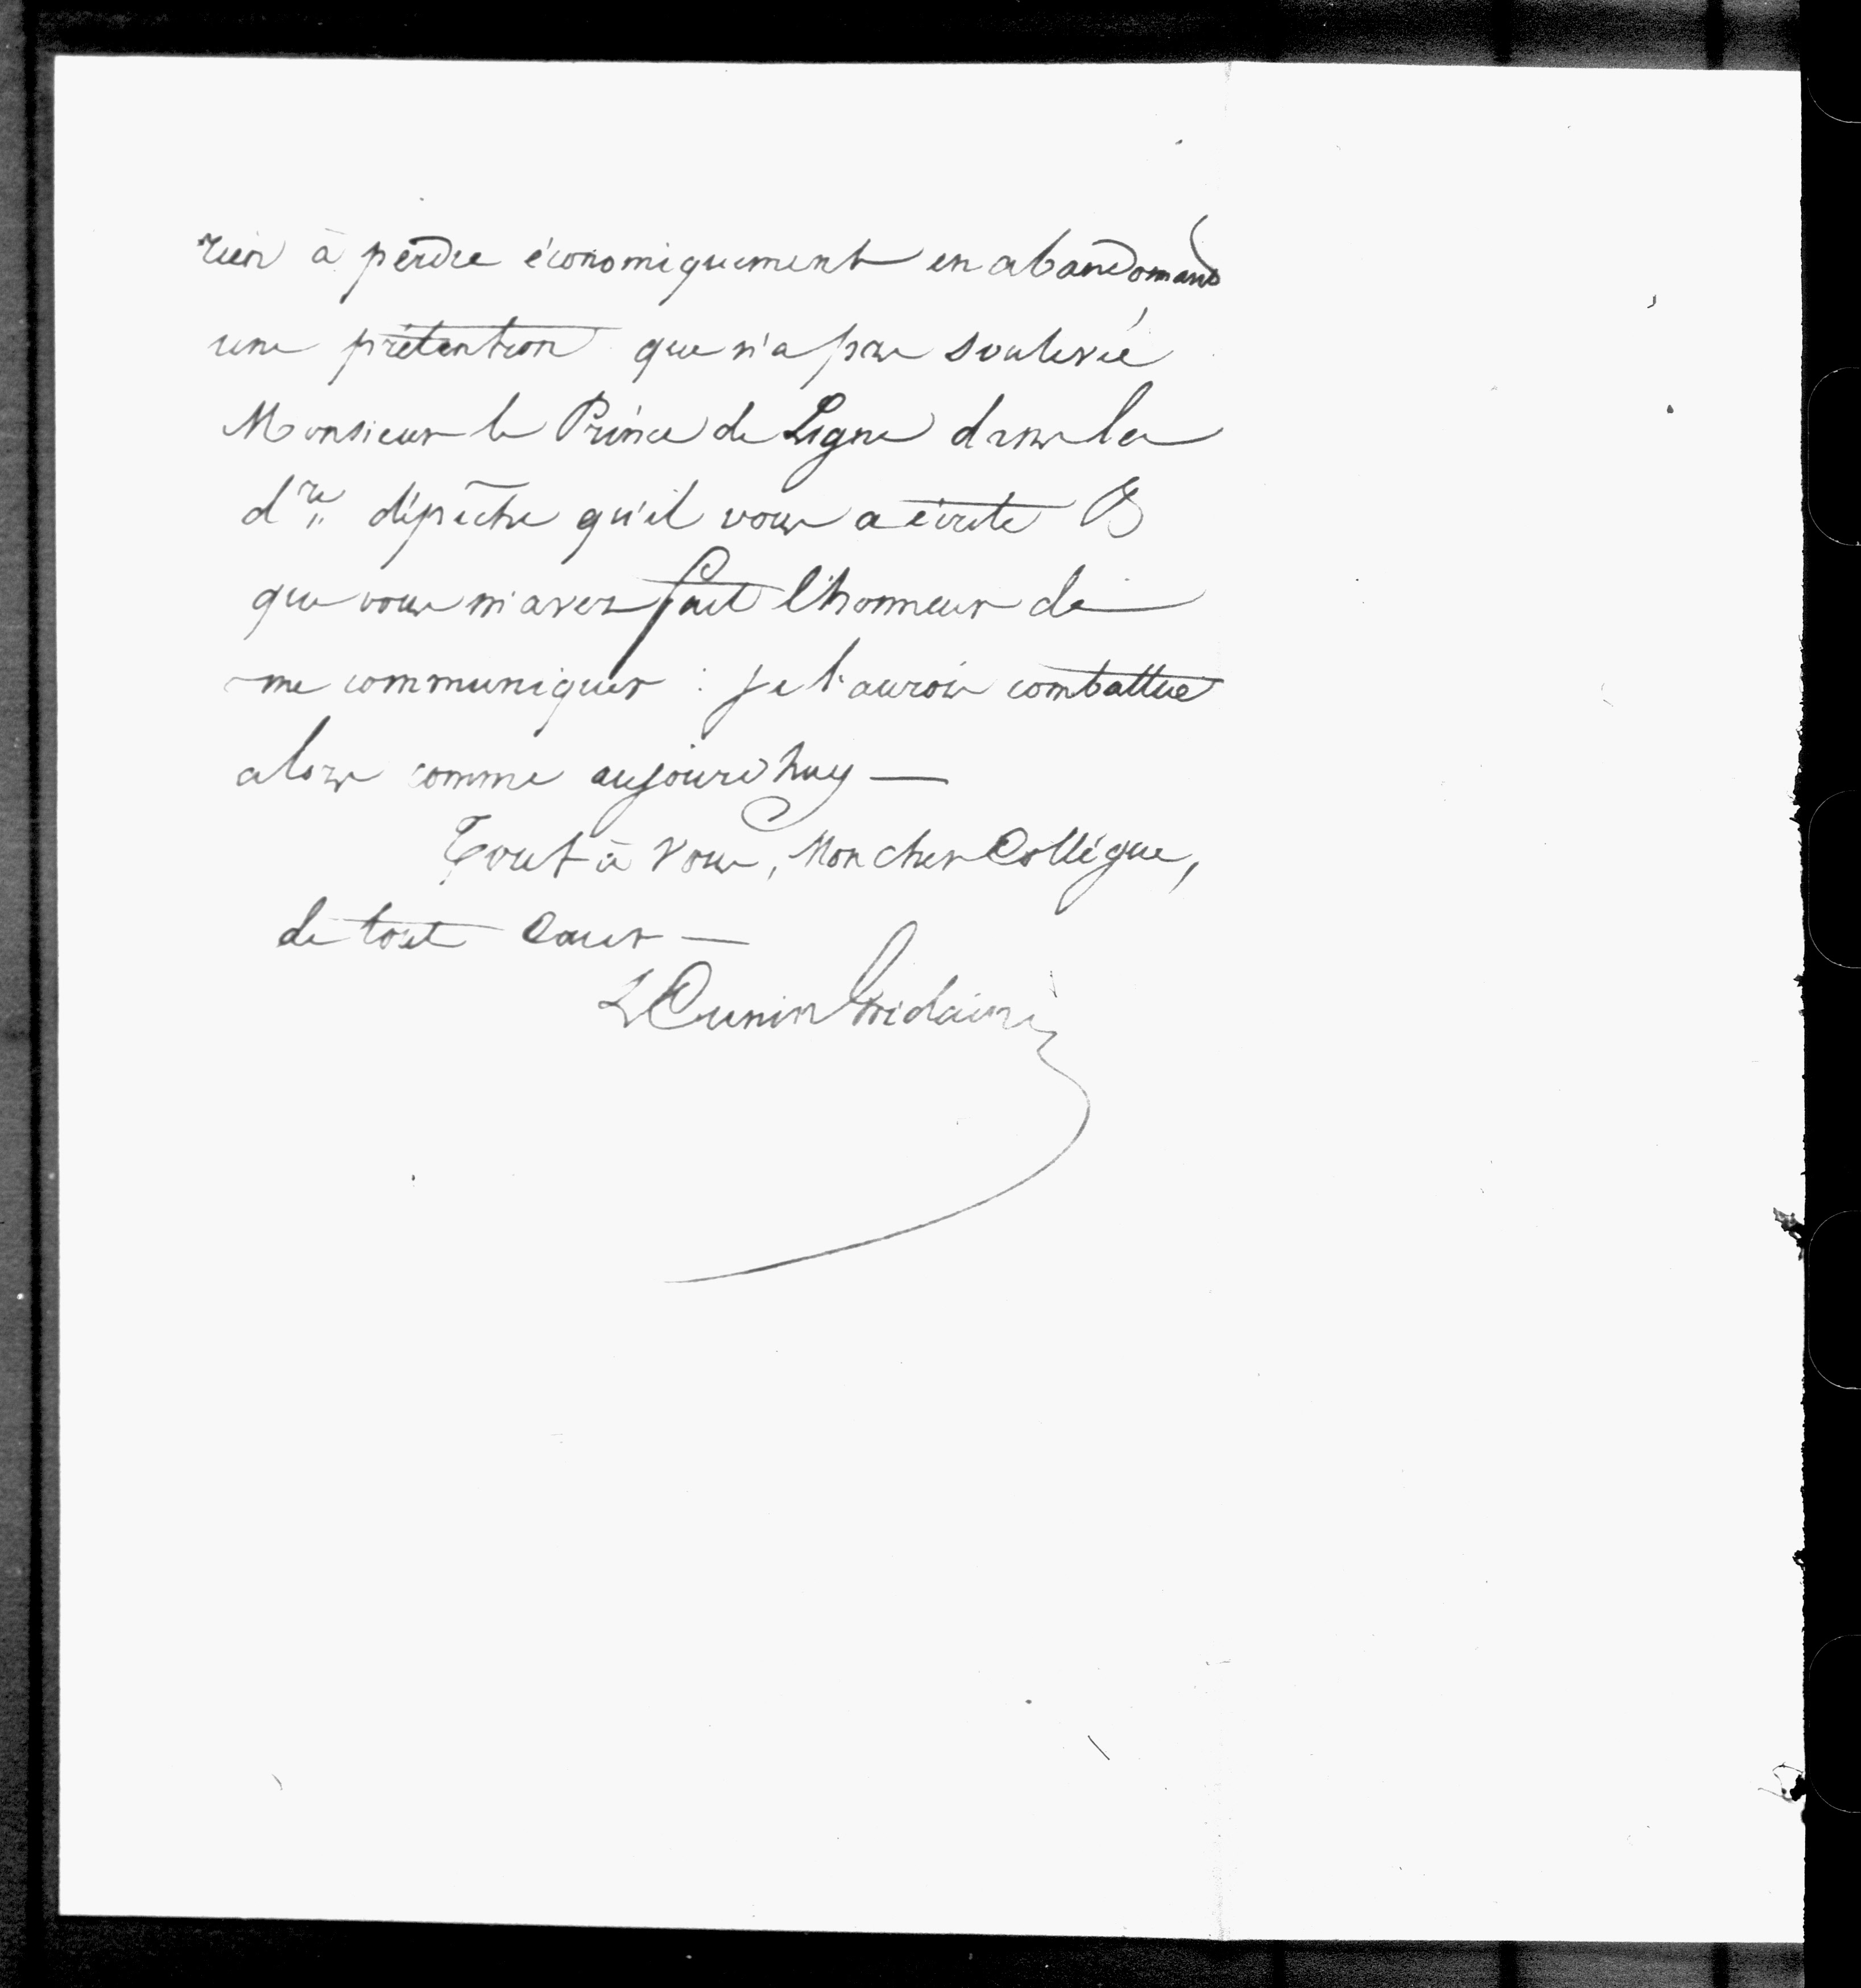 rien à perdre économiquement en abandonnant
une prétention que n'a pas soulevée
Monsieur le Prince de Ligne dans la
d.re dépêche qu'il vous a écrite &
que vous m'avez fait l'honneur de
me communiquer : je l'aurois combattue
alors comme aujourdhuy —
Tout à vous, Mon cher Collégue,
de tout Cœur —
L Cunin Gridaine